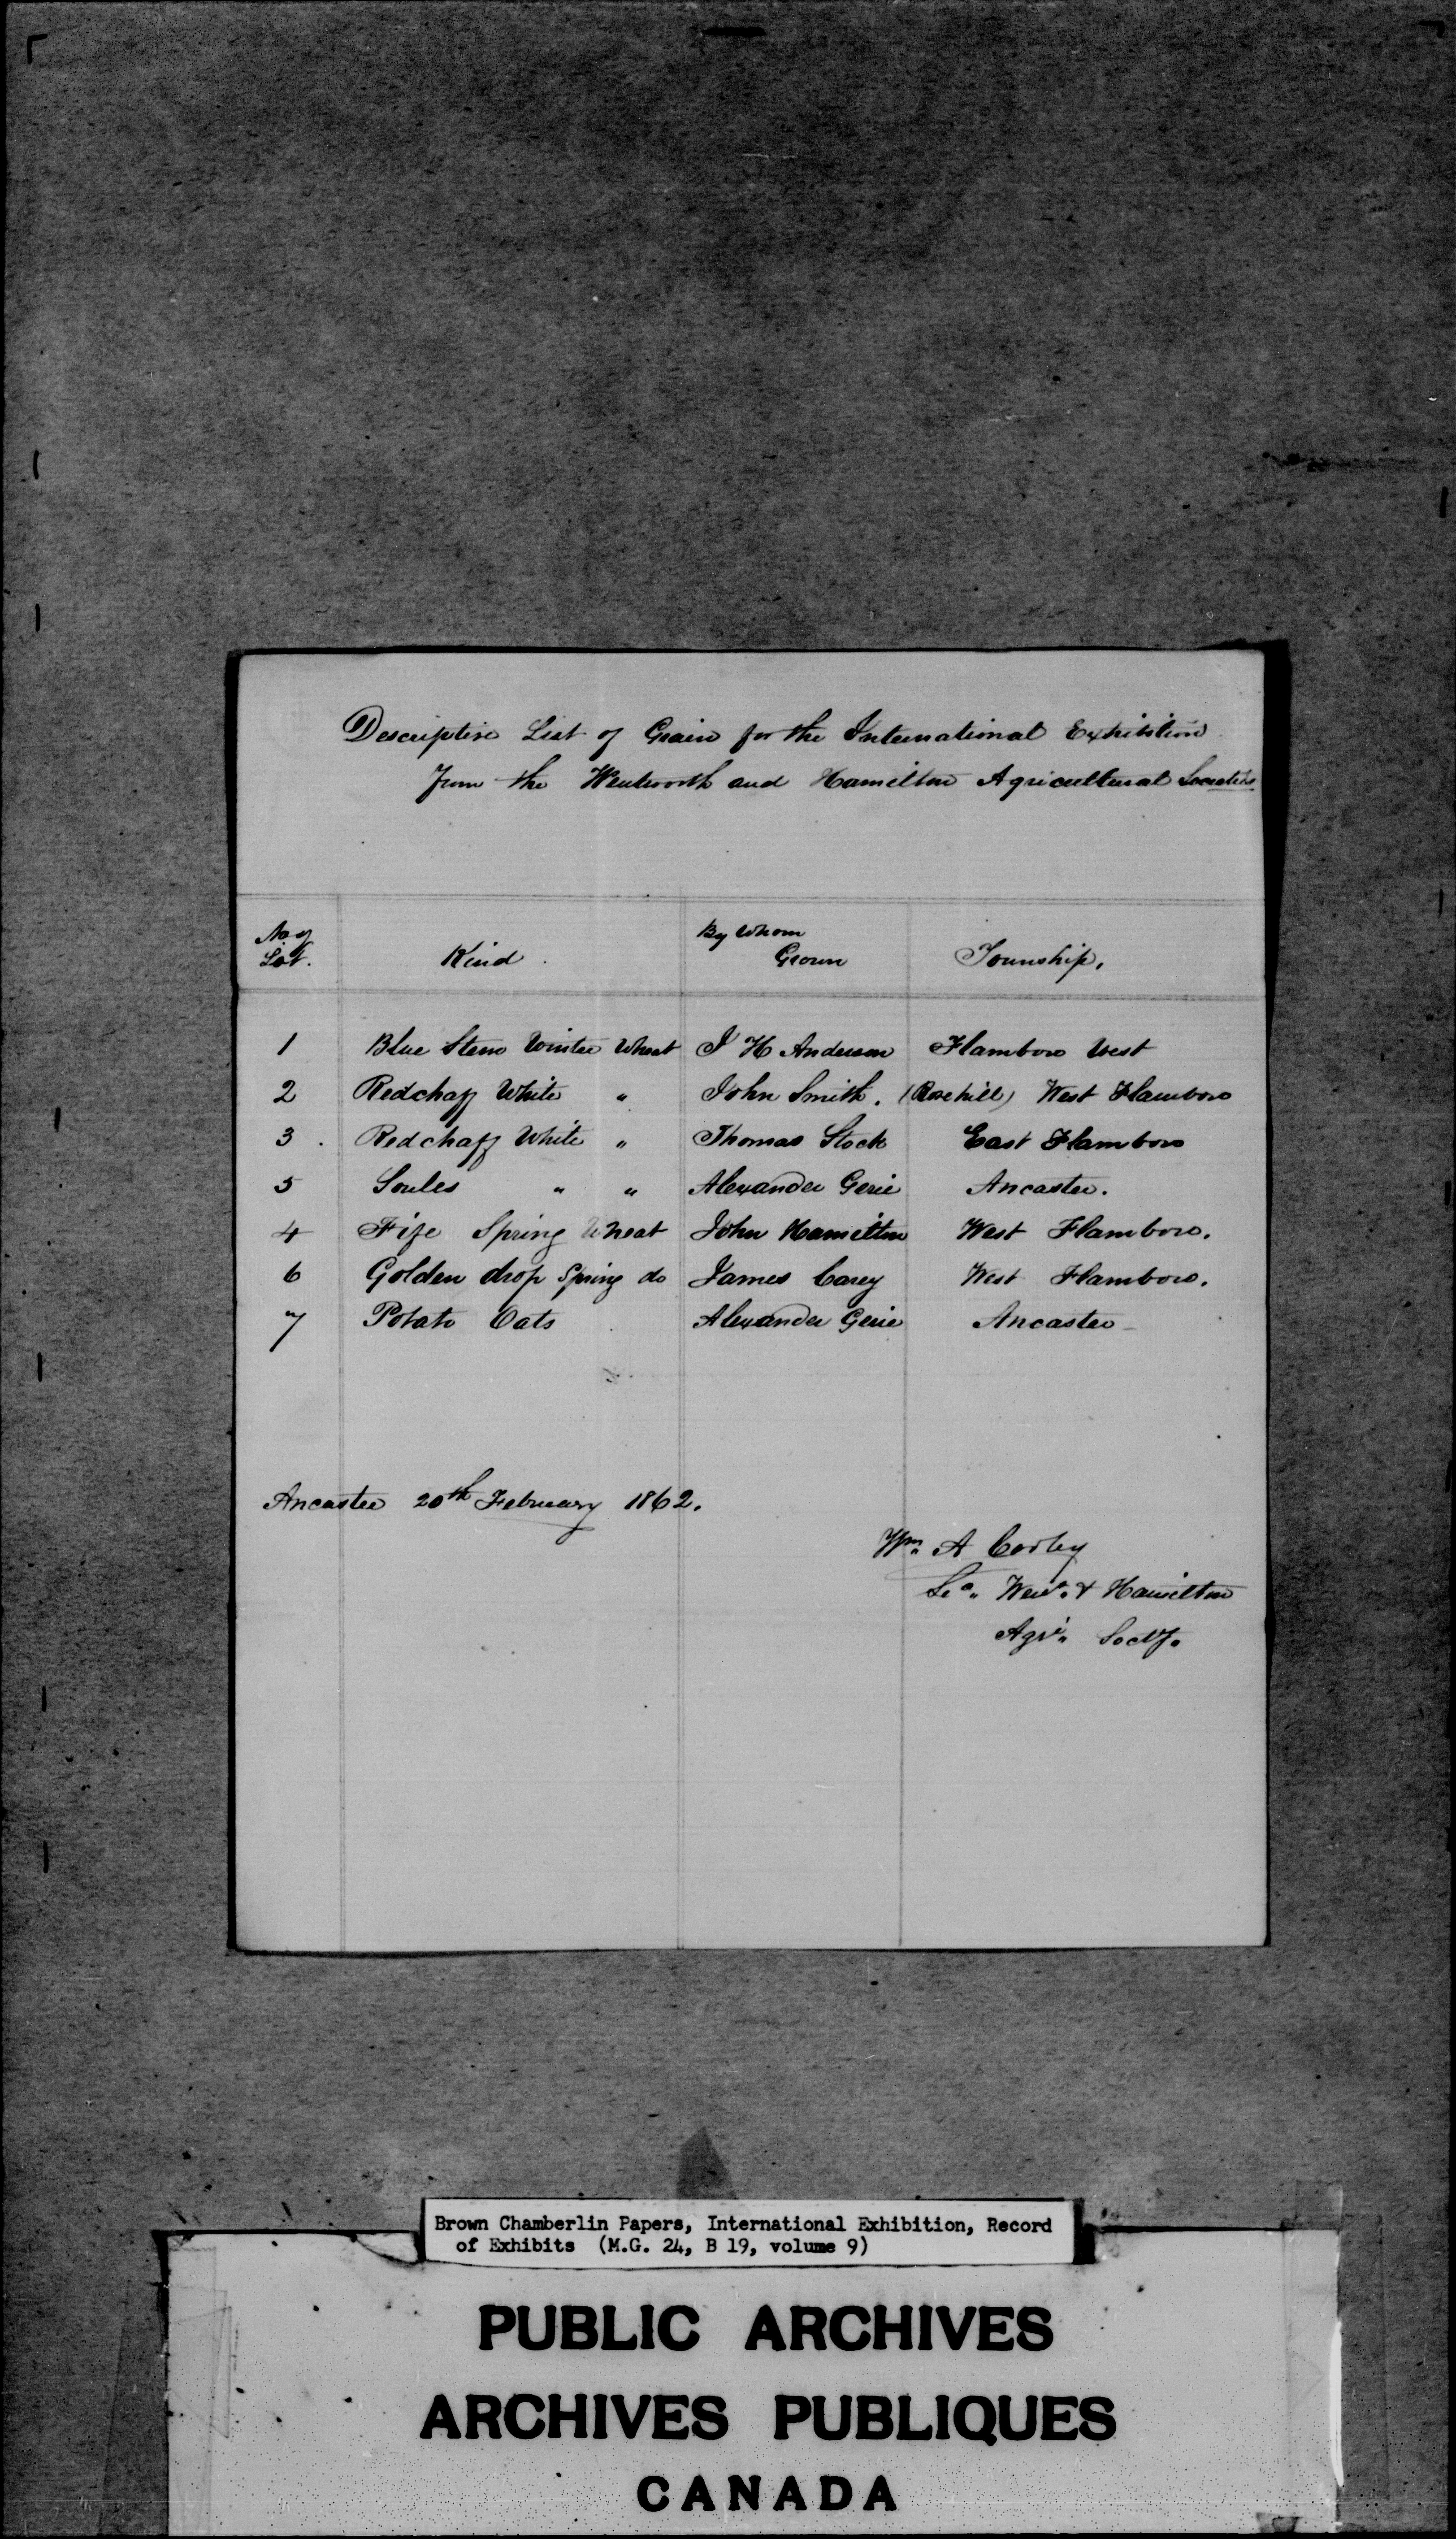 Descriptive List of Grain for the International Exhibition
from the Wentworth and Hamilton Agricultural Societies
No of Lot. Kind. By Whom Grown Township,
1 Blue Stem Winter Wheat J H Anderson Flamboro West
2 Redchaff White " John Smith. (Rosehill) West Flamboro
3. Redchaff White " Thomas Stock East Flamboro
5 Soules " " Alexander Gerie Ancaster.
4 Fife Spring Wheat John Hamilton West Flamboro.
6 Golden drop Spring do James Carey West Flamboro.
7 Potato Oats Alexander Gerie Ancaster
Ancaster 20th February 1862.
Wm A Cooley
Hamilton
Brown Chamberlin Papers, International Exhibition, Record
of Exhibits (M.G. 24, B 19, volume 9)
PUBLIC ARCHIVES
ARCHIVES PUBLIQUES
CANADA